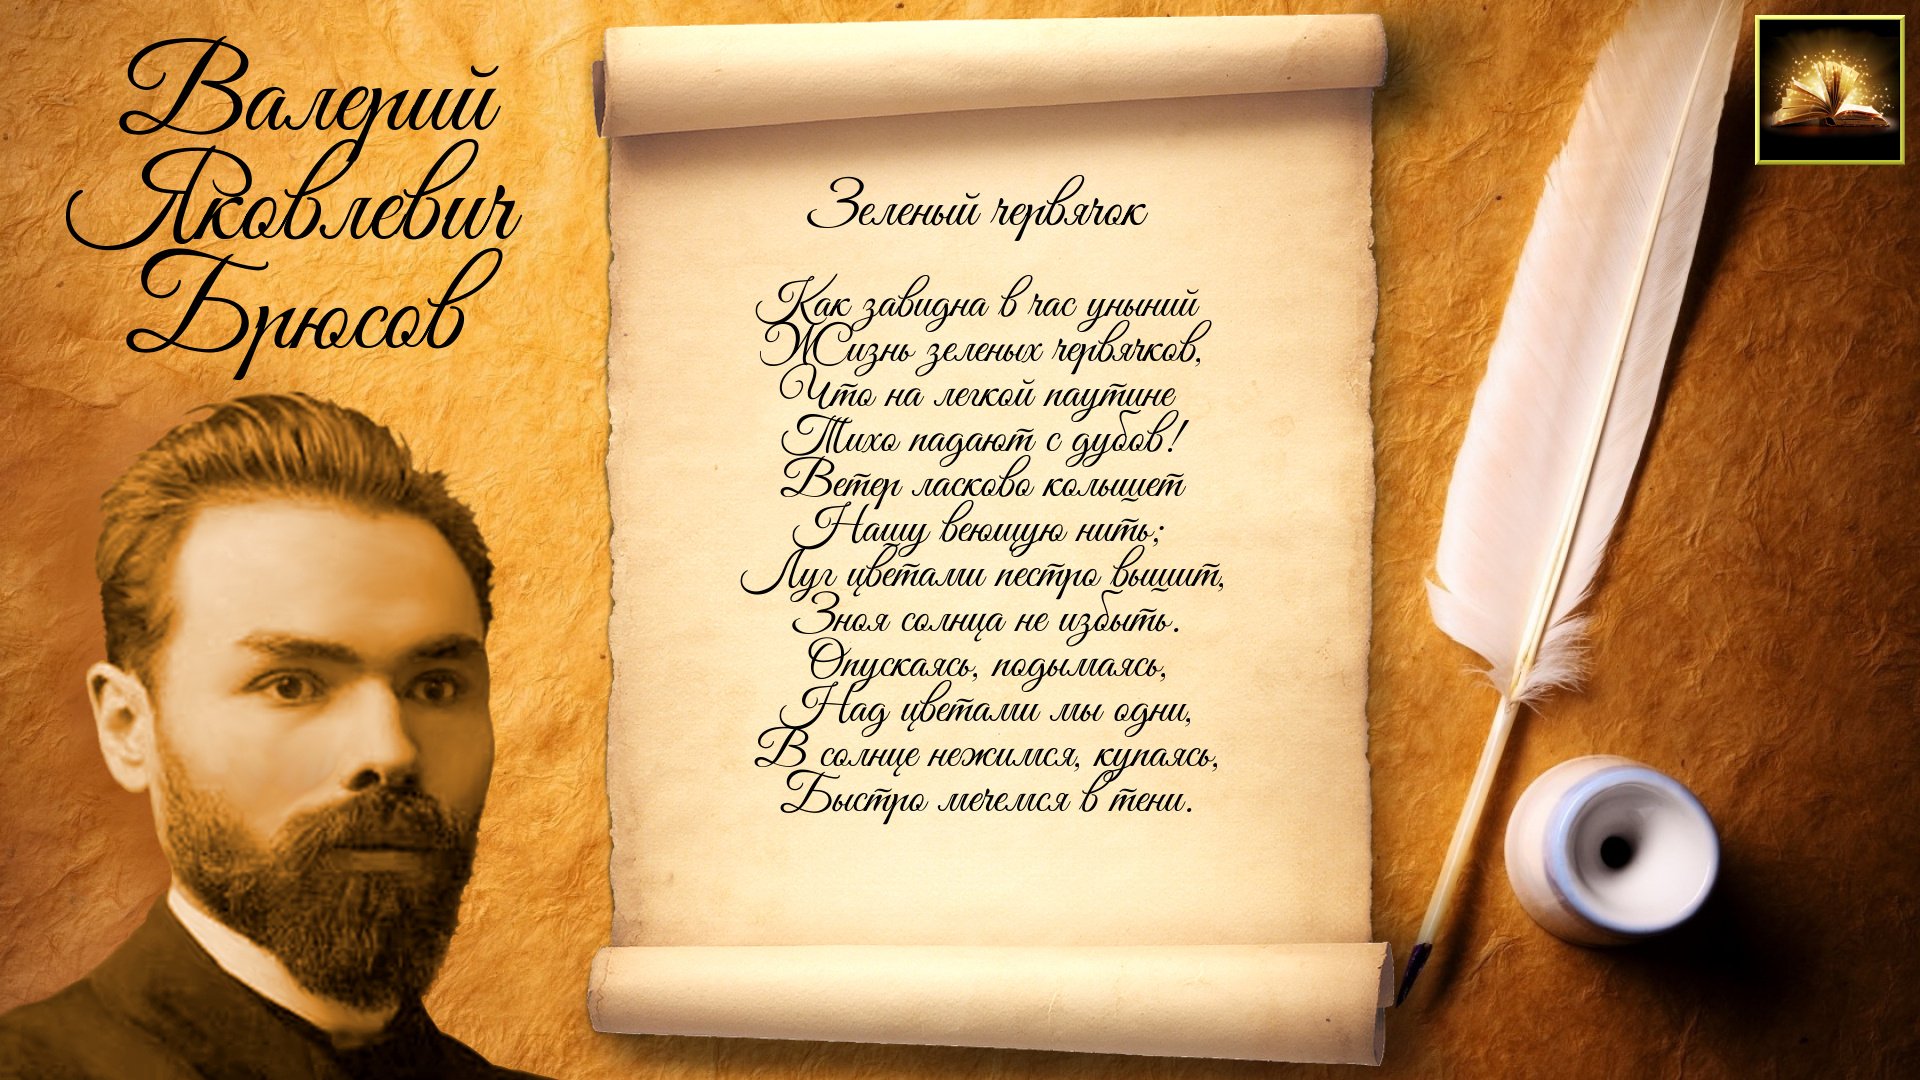 Валерий
Яковлевич
Брюсов
Зеленый червячок
Как завидна в час уныний
Жизнь зеленых червячков,
Что на легкой паутине
Тихо падают с дубов!
Ветер ласково колышет
Нашу веющую нить;
Луг цветами пестро вышит,
Зноя солнца не избыть.
Опускаясь, подымаясь,
Над цветами мы одни,
В солнце нежимся, купаясь,
Быстро мечемся в тени.